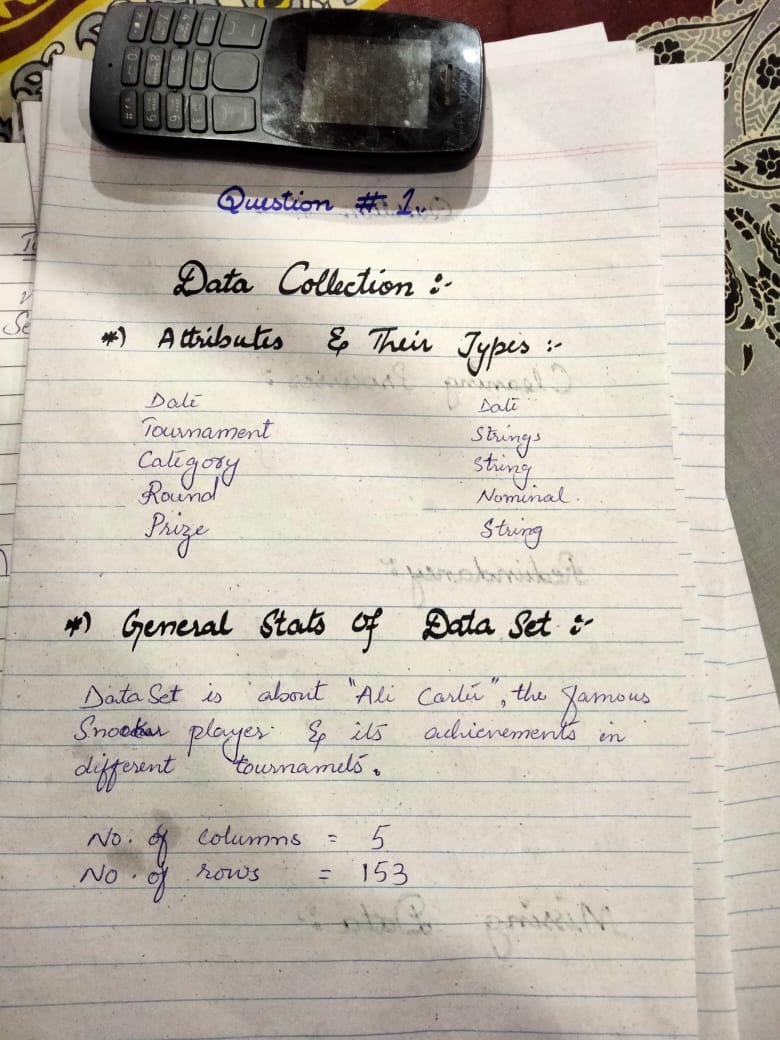 Question # 1.
Data Collection :-
*) Attributes & Their Types :-
Date Date
Tournament Strings
Category String
Round Nominal.
Prize String
*) General Stats of Data Set :-
Data Set is about "Ali Carter", the famous
Snooker player & its achievements in
different tournamets.
No. of columns = 5
No. of rows = 153